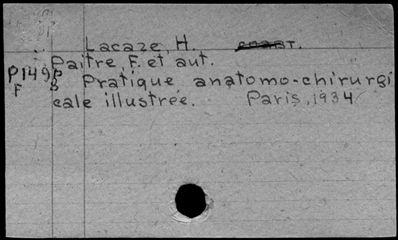 Lacaze, H.
Paitre, F. et aut.
P149p Pratique anatomo-chirurgi
F 8
cale illustrée. Paris, 1934